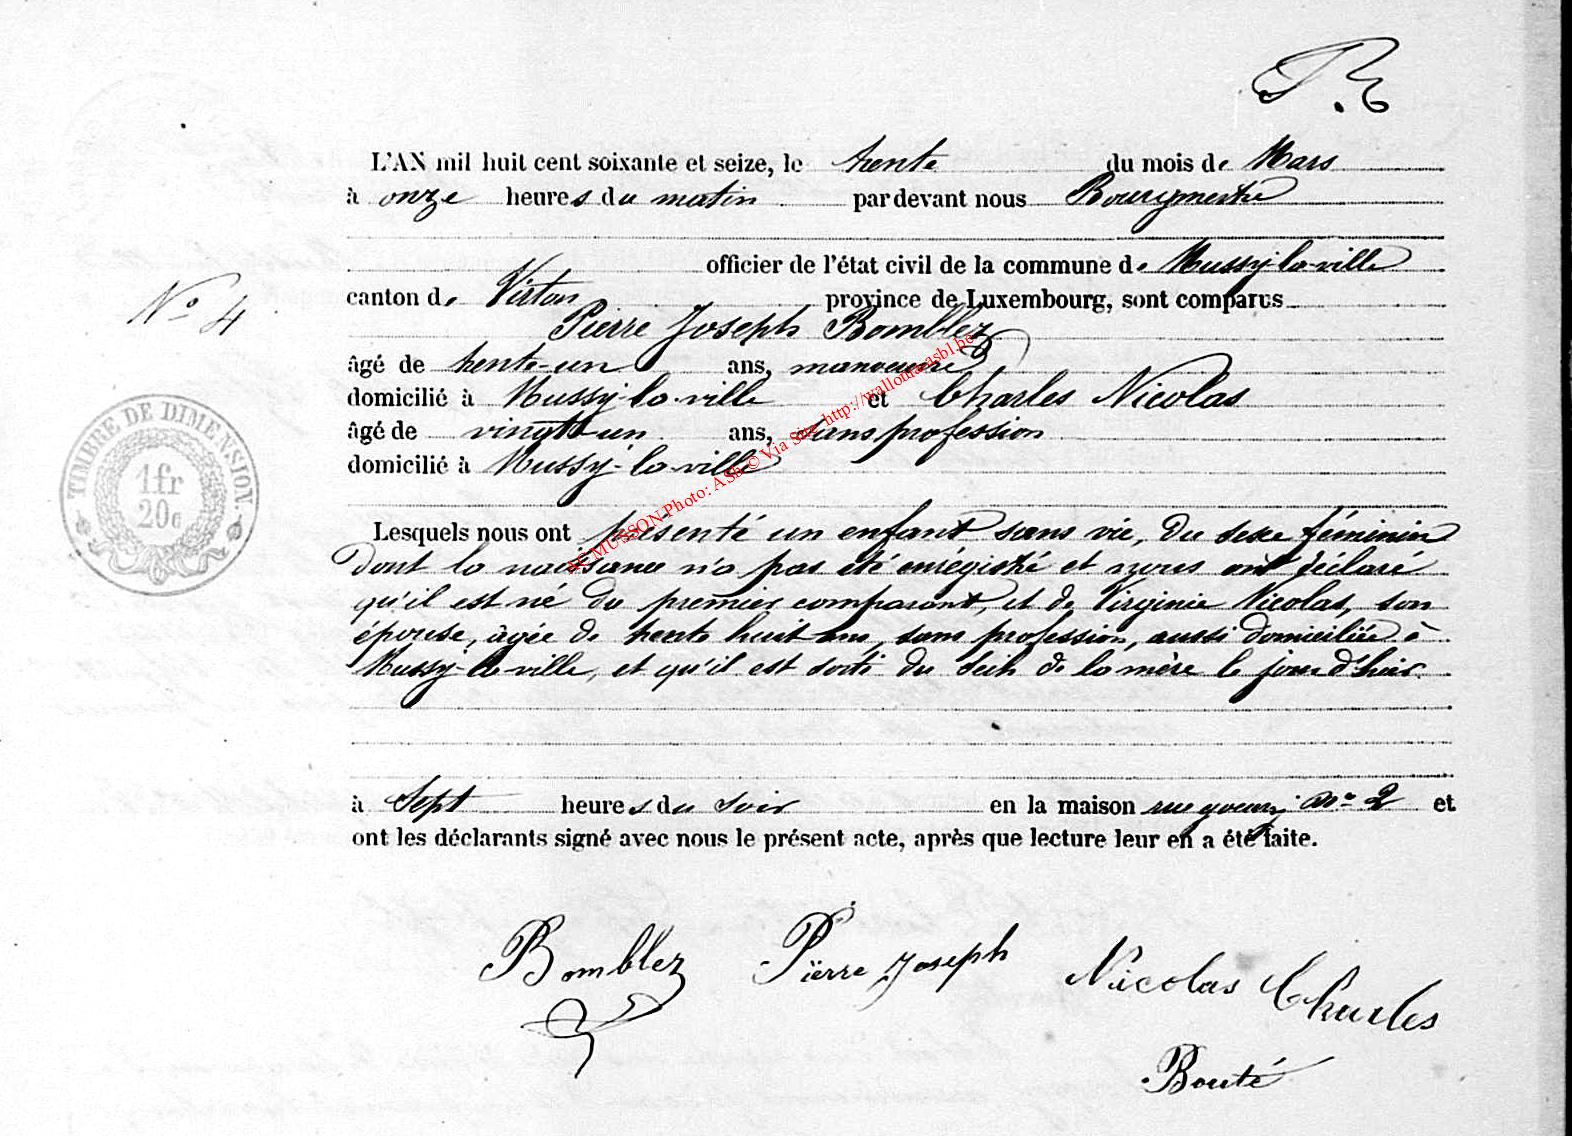 L'AN mil huit cent soixante et seize, le trente du mois de Mars
à onze heures du matin par devant nous Bourgmestre
officier de l'état civil de la commune de Mussy-la-ville
N° 4
canton de Virton province de Luxembourg, sont comparus
Pierre Joseph Bomblez
âgé de trente-un ans, manoeuvre
domicilié à Mussy-la-ville et Charles Nicolas
âgé de vingt-un ans, sans profession
domicilié à Mussy-la-ville
TIMBRE DE DIMENSION.
1fr
20c
Lesquels nous ont présenté un enfant sans vie, du sexe féminin
dont la naissance n'a pas été enrégistré et nous ont déclaré
qu'il est né du premier comparant, et de Virginie Nicolas, son
épouse, âgée de trente huit ans, sans profession, aussi domiciliée à
Mussy-la-ville, et qu'il est sorti du sein de la mère le jour d'hier
à Sept heures du soir en la maison rue n° 2 et
ont les déclarants signé avec nous le présent acte, après que lecture leur en a été faite.
Bomblez Pierre Joseph Nicolas Charles
Bouté
MUSSON Photo: ASB © Via Site http://wallonia-asbl.be